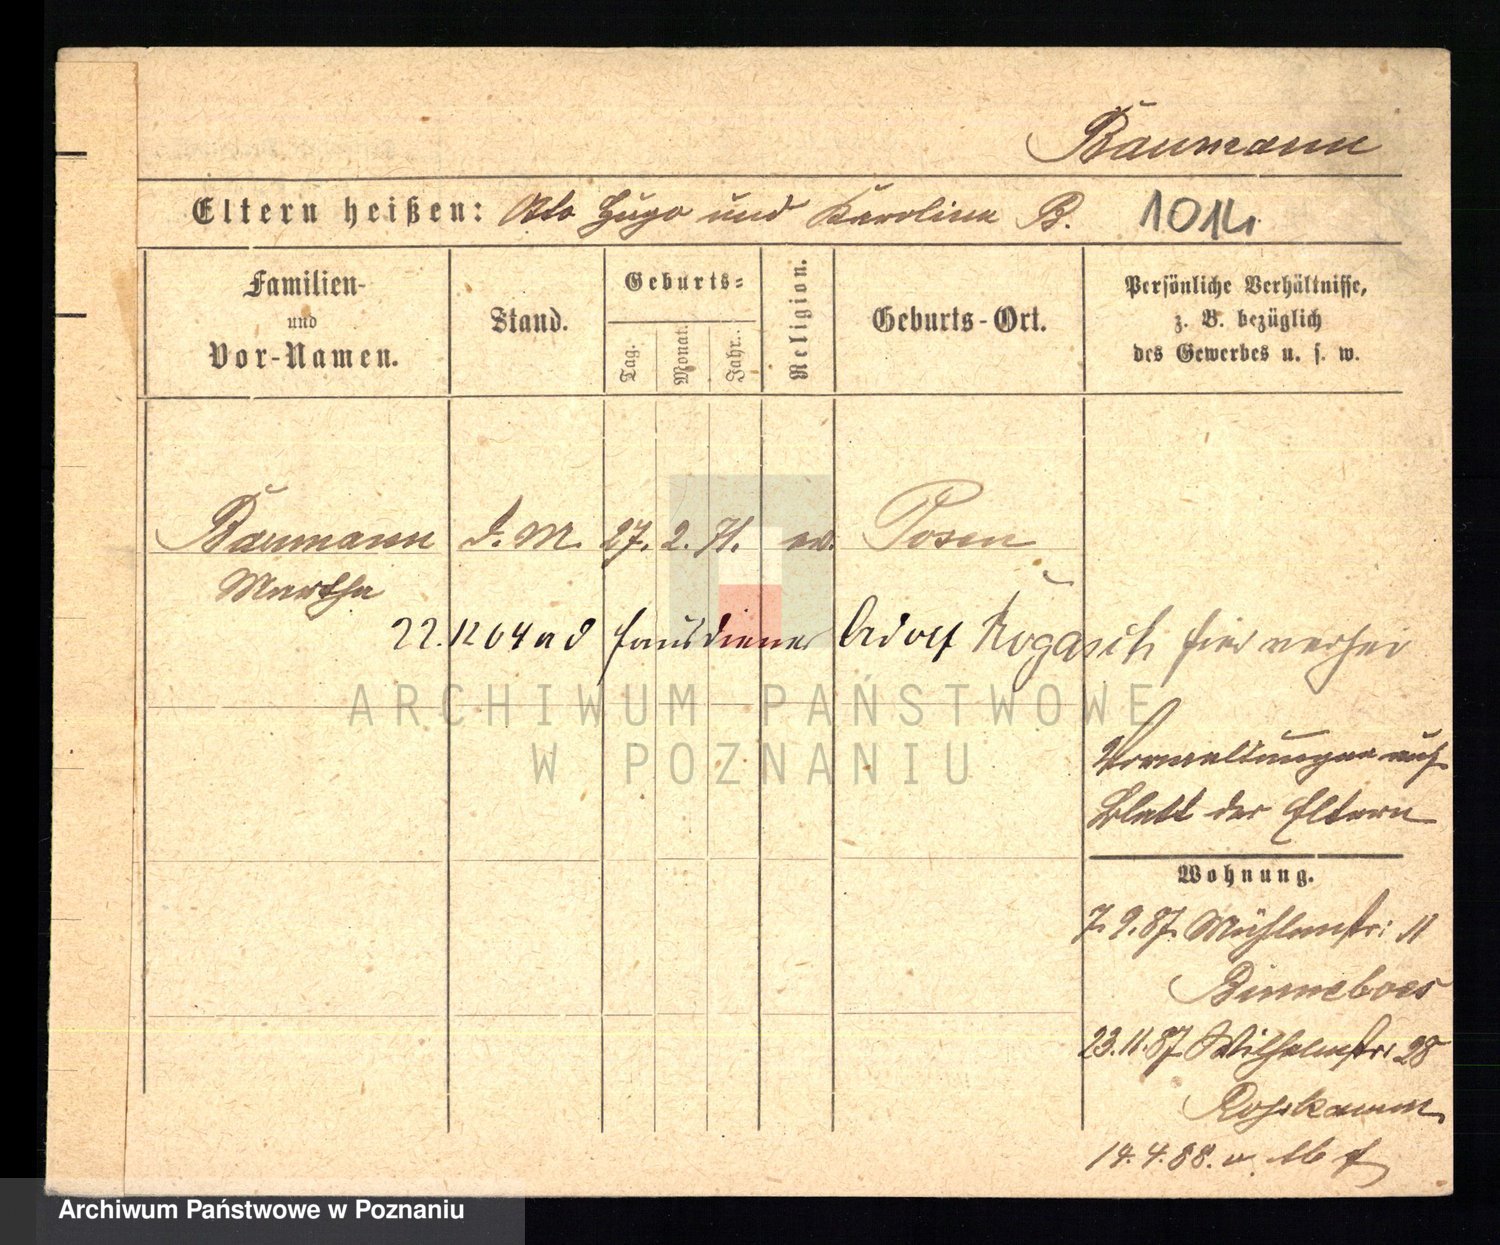 Baumann
Eltern heißen: Otto Hugo und Karoline B. 1014
Familien- und Vor-Namen.
Stand.
Geburts-
Tag. Monat. Jahr.
Religion.
Geburts-Ort.
Persönliche Verhältnisse,
z. B. bezüglich
des Gewerbes u. s. w.
Baumann D. M. 27. 2. 71. ev. Posen
Martha
22.12 04 a d Hausdiener Adolf Rogasch hier verhei
Vorwaltungen auf
Blatt der Eltern
Wohnung.
7. 9. 87. Mühlenstr: 11
Binneboes
23.11.87 Wilhelmstr: 28
Rosskamm
14. 4. 88. u.
ARCHIWUM PAŃSTWOWE
W POZNANIU
Archiwum Państwowe w Poznaniu